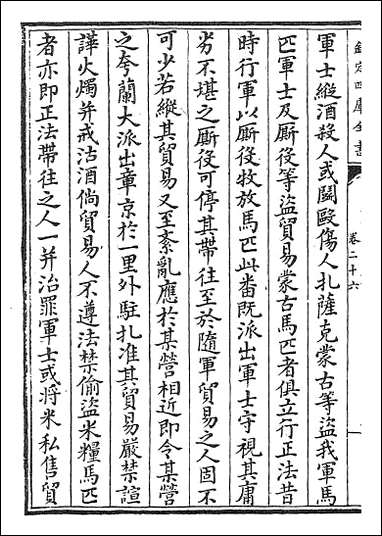 欽定四庫全書
卷二十六
軍士縱酒殺人或鬬毆傷人扎薩克蒙古等盜我軍馬
匹軍士及厮役等盜貿易蒙古馬匹者俱立行正法昔
時行軍以厮役牧放馬匹此番既派出軍士守視其庸
劣不堪之厮役可停其帶往至於隨軍貿易之人固不
可少若縱其貿易又至紊亂應於某營相近即令某營
之夸蘭大派出章京於一里外駐扎准其貿易嚴禁諠
譁火燭并戒沽酒倘貿易人不遵法禁偷盜米糧馬匹
者亦即正法帶往之人一并治罪軍士或將米私售貿